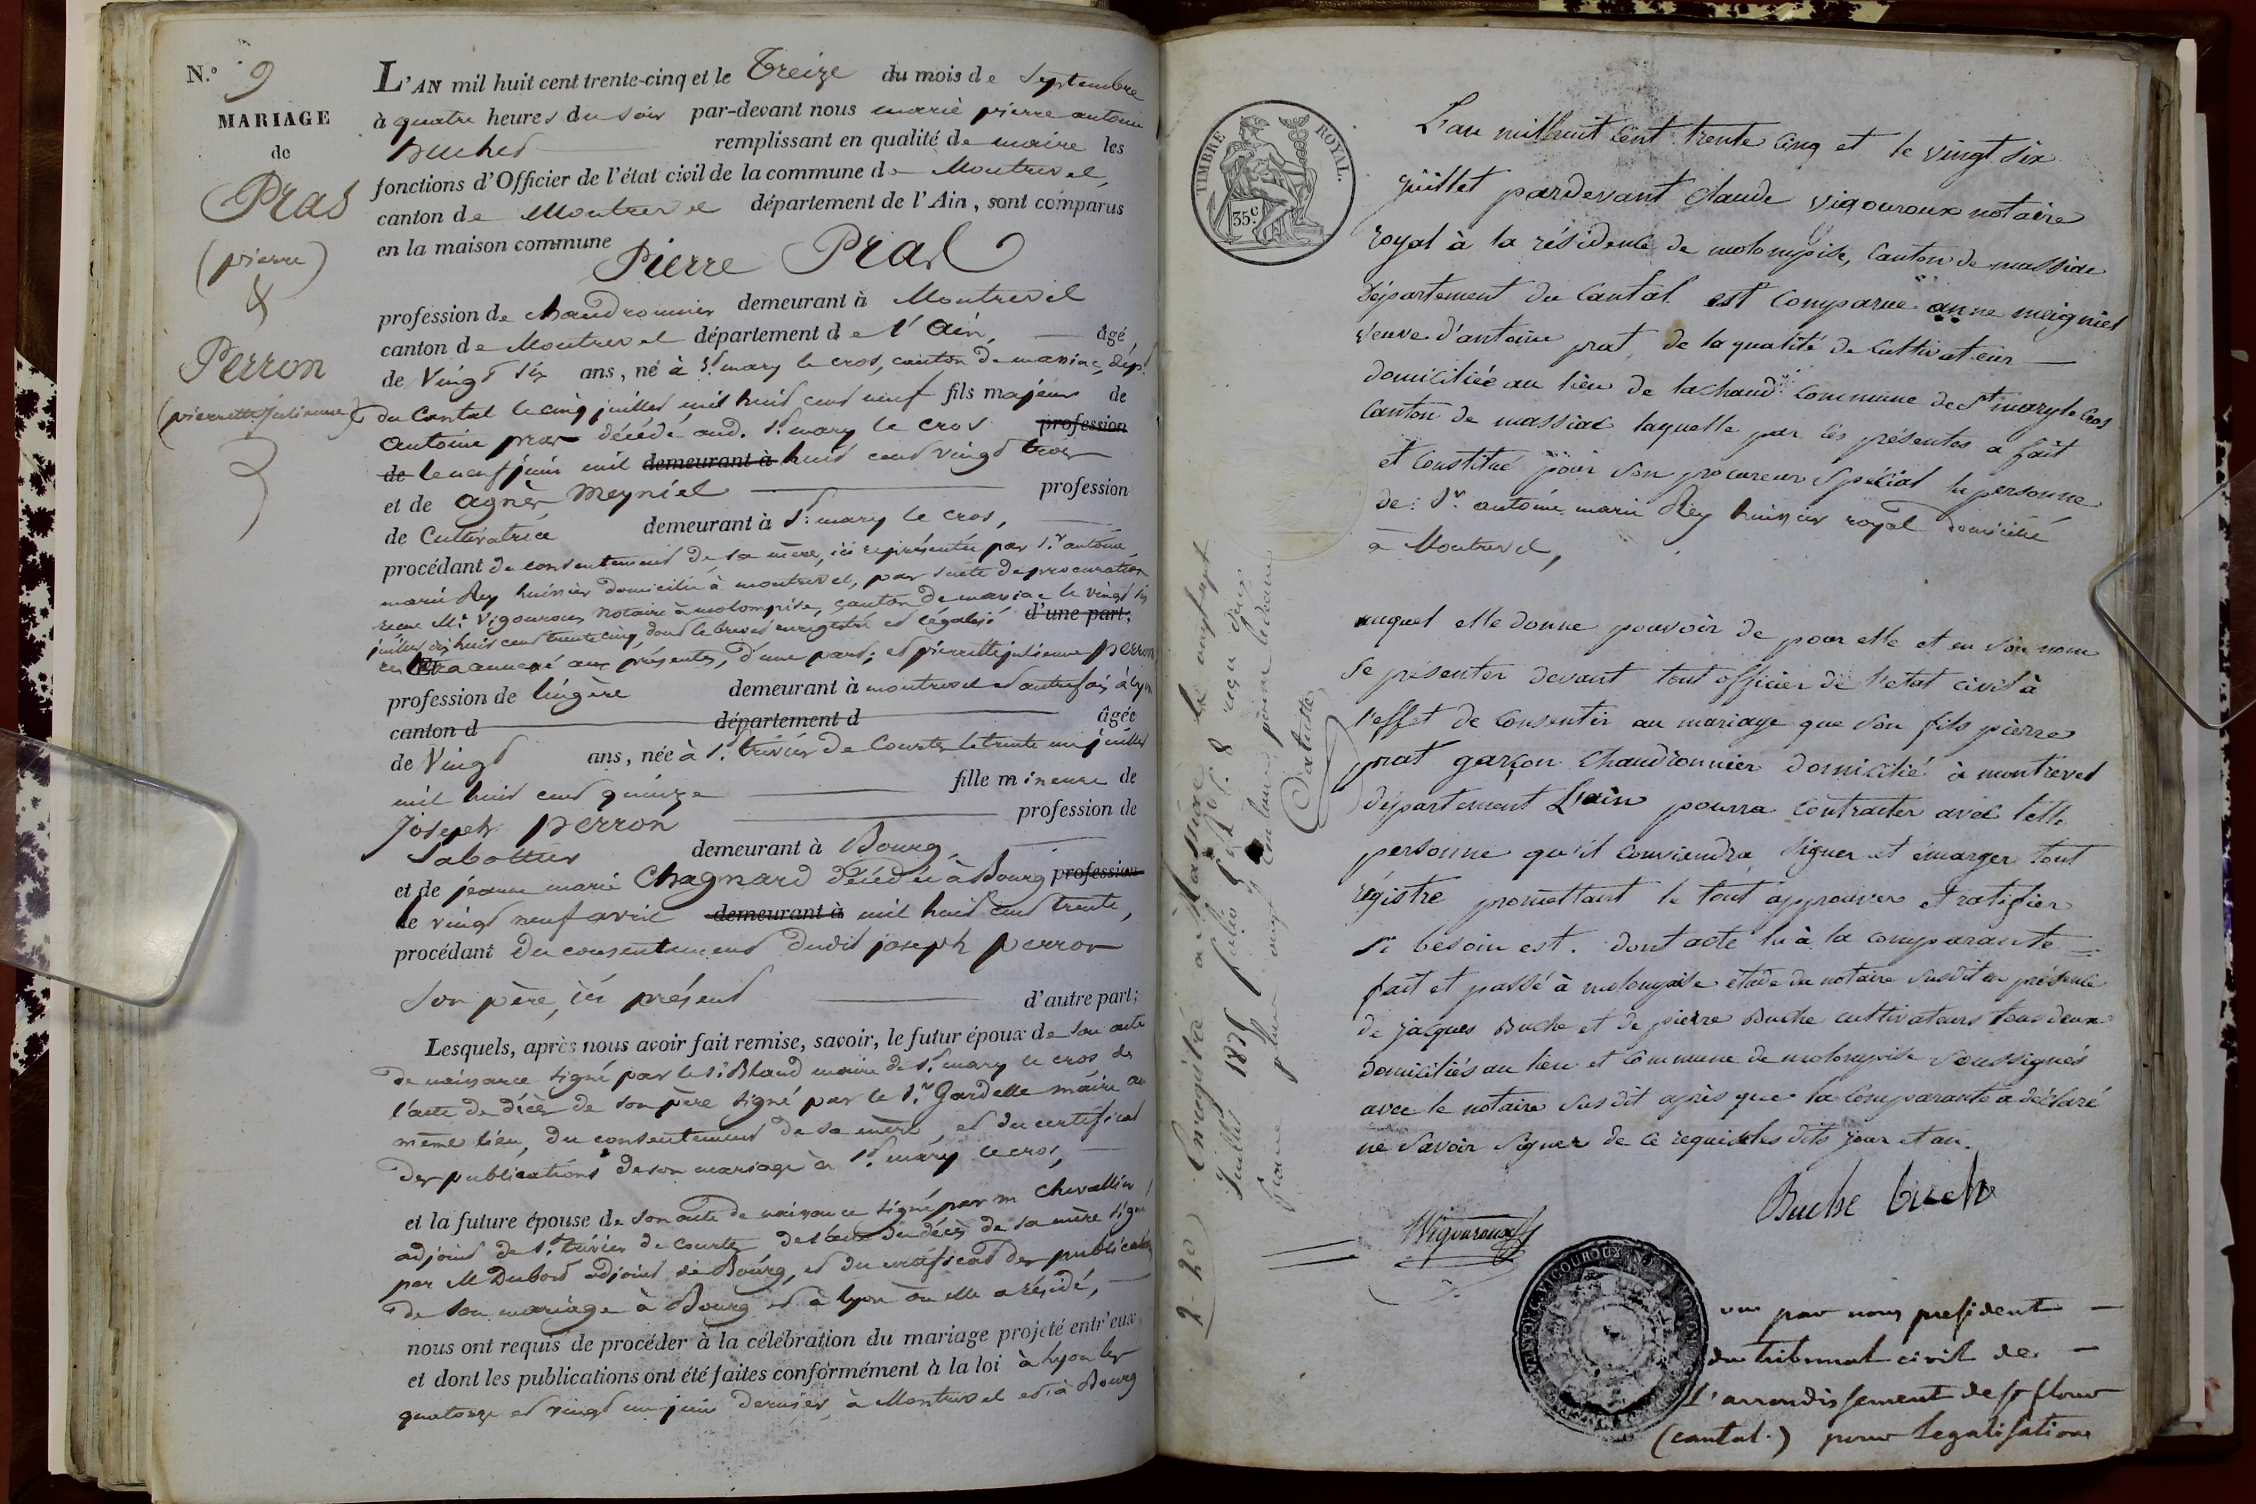 N.o 9
MARIAGE
de
Pras
(pierre)
&
Perron
(pierrette julienne)
L'AN mil huit cent trente-cinq et le Treize du mois de septembre
à quatre heures du soir par-devant nous marie pierre antoine
Buchet remplissant en qualité de maire les
fonctions d'Officier de l'état civil de la commune de Montrevel,
canton de Montrevel département de l'Ain, sont comparus
en la maison commune
Pierre Pras
profession de chaudronnier demeurant à Montrevel
canton de Montrevel département de l'Ain, âgé,
de Vingt six ans, né à St. mary le cros, canton de massiac, dépt.
du Cantal le cinq juillet mil huit cent neuf fils majeur de
Antoine pras décédé aud. St. mary le cros profession
de le neuf juin mil demeurant à huit cent vingt trois
et de Agnès Meyniel profession
de Cultivatrice demeurant à St. mary le cros,
procédant du consentement de sa mère, ici représentée par Sr. antoine
marie Rey huissier domicilié à montrevel, par suite de procuration
recue Me. Vigouroux Notaire à molompise, canton de massiac le vingt six
juillet dix huit cent trente cinq, dont le brevet enregistré et légalisé d'une part;
restera annexé aux présentes, d'une part; et pierrette julienne perron
profession de lingère demeurant à montrevel et autrefois à Lyon
canton d département d âgée
de Vingt ans, née à St. trivier de Courtes le trente un juillet
mil huit cent quinze fille mineure de
Joseph perron profession de
Sabottier demeurant à Bourg,
et de jeanne marie Chagnard décédée à Bourg profession
le vingt neuf avril demeurant à mil huit cent trente,
procédant du consentement dudit joseph perron
son père, ici présent d'autre part;
Lesquels, après nous avoir fait remise, savoir, le futur époux de son acte
de naissance signé par le Sr. Bland maire de St. mary le cros de
l'acte de décès de son père signé par le Sr. Gardelle maire au
même lieu, du consentement de sa mère, et du certificat
des publications de son mariage à St. mary le cros,
et la future épouse de son acte de naissance signé par m Chevallier
adjoint de St. trivier de courtes de l'acte du décès de sa mère signé
par M Dubost adjoint de Bourg, et du certificat des publications
de son mariage à Bourg et à lyon où elle a résidé,
nous ont requis de procéder à la célébration du mariage projeté entr'eux
et dont les publications ont été faites conformément à la loi à Lyon les
quatorze et vingt un juin dernier, à Montrevel et à Bourg
TIMBRE ROYAL.
35c
L'an milhuit cent trente cinq et le vingt six
juillet pardevant Claude Vigouroux notaire
royal à la résidence de molompise, Canton de massiac
département du Cantal est Comparue anne meigniel
veuve d'antoine prat, de la qualité de Cultivateur
domiciliée au lieu de lachaud Commune de St mary le Cros
Canton de massiac laquelle par ces présentes a fait
et Constitué pour son procureur spécial la personne
de: Sr. antoine marie Rey huissier royal domicilié
à Montrevel,
auquel elle donne pouvoir de pour elle et en son nom
se présenter devant tout officier de l'etat civil à
l'effet de Consentir au mariage que son fils pierre
prat garçon Chaudronnier domicilié à montrevel
département L'ain pourra Contracter avec telle
personne qu'il Conviendra, signer et émarger tout
régistre promettant le tout approuver et ratifier
si besoin est. Dont acte lu à la Comparante
fait et passé à molompise étude du notaire susdit en présence
de jacques Buche et de pierre Buche cultivateurs tous deux
domiciliés au lieu et Commune de molompise soussignés
avec le notaire sus dit après que la Comparante a déclaré
ne savoir signer de ce requise les dits jour et an.
Buche Buche
Vigouroux
Enregistré à Massiac le vingt sept
Juillet 1835 folio 8 reçu deux
francs plus vingt centimes pour le décime
2-20
vu par nous president
du tribunal civil de
l'arrondissement de st flour
(cantal.) pour legalisation